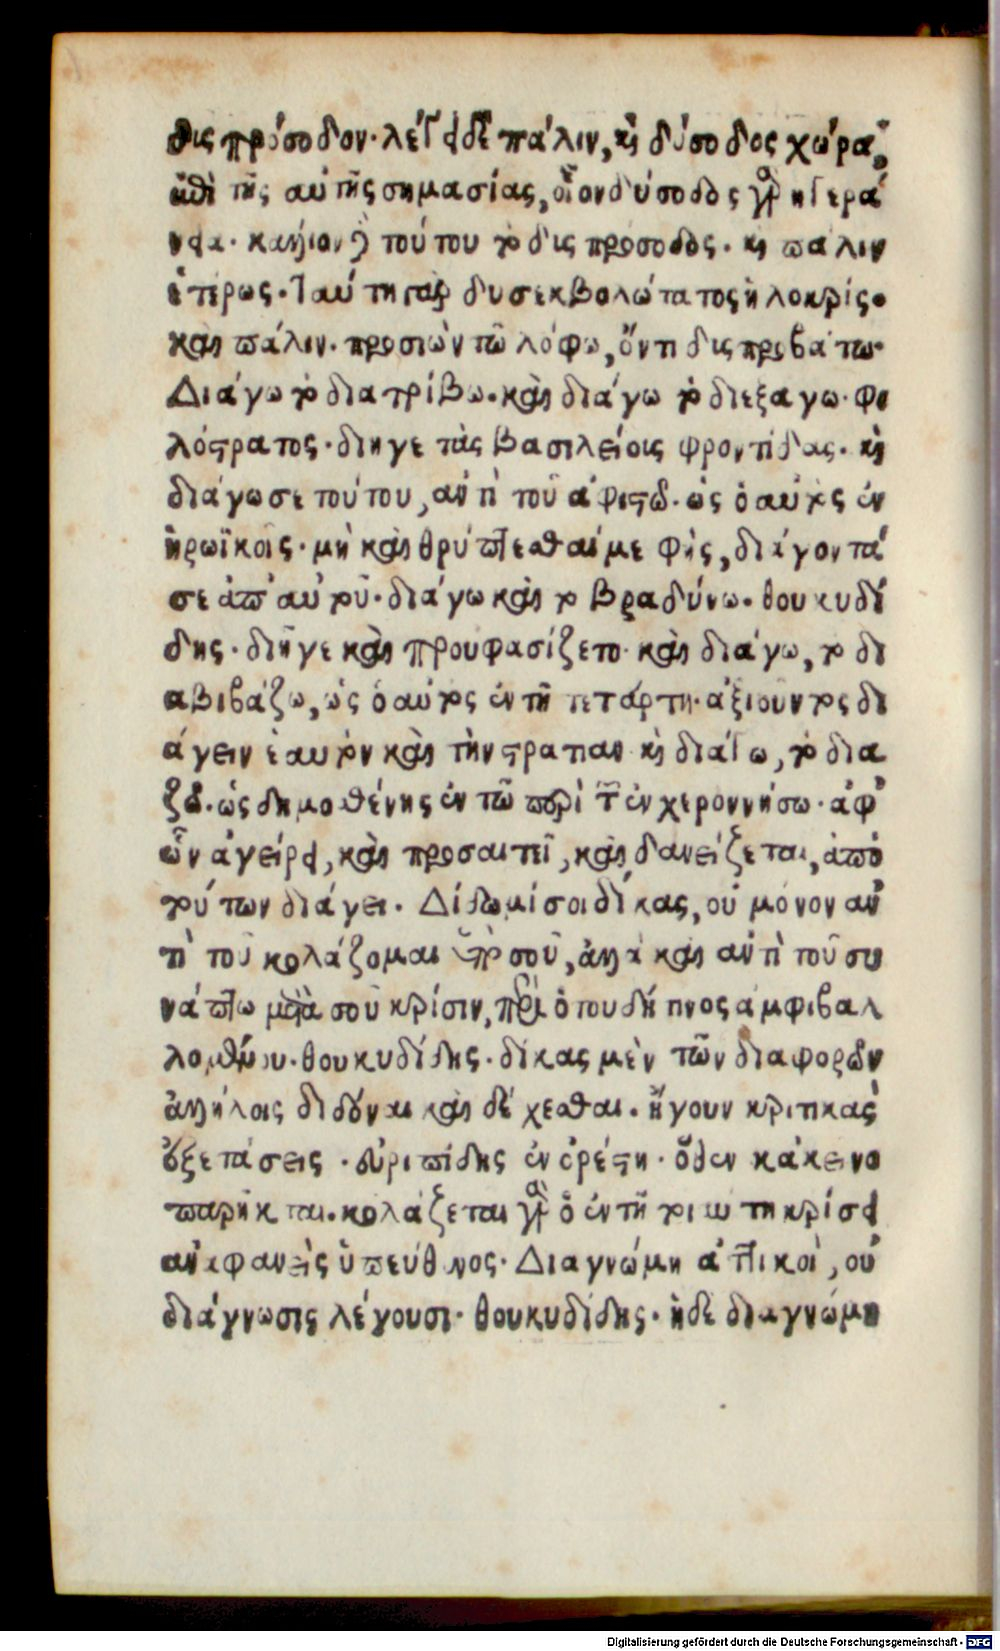 δις πρόσοδον· λέγει δὲ πάλιν, καὶ δύσοδος χώρα,
ἐπὶ τῆς αὐτῆς σημασίας, οἷον δύσοδος γὰρ ἡ Γερά
νεια· κάλλιον δὲ τούτου τὸ δισπρόσοδος· καὶ πάλιν
ἑτέρως· ταύτῃ γὰρ δυσεκβολώτατος ἡ λοκρίς·
καὶ πάλιν· προσιὼν τῶ λόφω, ὄντι δισπροβάτω·
Διάγω τὸ διατρίβω· καὶ διάγω τὸ διεξάγω· φι
λόστρατος· διῆγε τὰς βασιλείοις φροντίδας· καὶ
διάγω σε τούτου, ἀντὶ τοῦ ἀφιστῶ· ὡς ὁ αὐτὸς ἐν
ἡρωϊκοῖς· μὴ καὶ θρύπτεσθαί με φῂς, διάγοντά
σε ἀπ' αὐτοῦ· διάγω καὶ τὸ βραδύνω· θουκυδί
δης· διῆγε καὶ προυφασίζετο· καὶ διάγω, τὸ δι
αβιβάζω, ὡς ὁ αὐτὸς ἐν τῇ τετάρτη· ἀξιοῦντος δι
άγειν ἑαυτὸν καὶ τὴν στρατιάν· καὶ διάγω, τὸ δια
ζῶ· ὡς δημοσθένης ἐν τῶ περὶ τῶν ἐν χεροννήσω· ἀφ'
ὧν ἀγείρει, καὶ προσαιτεῖ, καὶ δανείζεται, ἀπὸ
τούτων διάγει· Δίδωμί σοι δίκας, οὐ μόνον ἀν
τὶ τοῦ κολάζομαι ὑπὸ σοῦ, ἀλλὰ καὶ ἀντὶ τοῦ συ
νάπτω μετὰ σοῦ κρίσιν, περὶ ὁτουδή τινος ἀμφιβαλ
λομένου· θουκυδίδης· δίκας μὲν τῶν διαφορῶν
ἀλλήλοις διδόναι καὶ δέχεσθαι· ἤγουν κριτικὰς
ἐξετάσεις· εὐριπίδης ἐν ὀρέστη· ὅθεν κἀκεῖνο
παρῆκται· κολάζεται γὰρ ὁ ἐν τῇ τοιαύτη κρίσει
ἀναφανεὶς ὑπεύθυνος· Διαγνώμη ἀττικοὶ, οὐ
διάγνωσις λέγουσι· θουκυδίδης· ἡ δὲ διαγνώμη
Digitalisierung gefördert durch die Deutsche Forschungsgemeinschaft - DFG